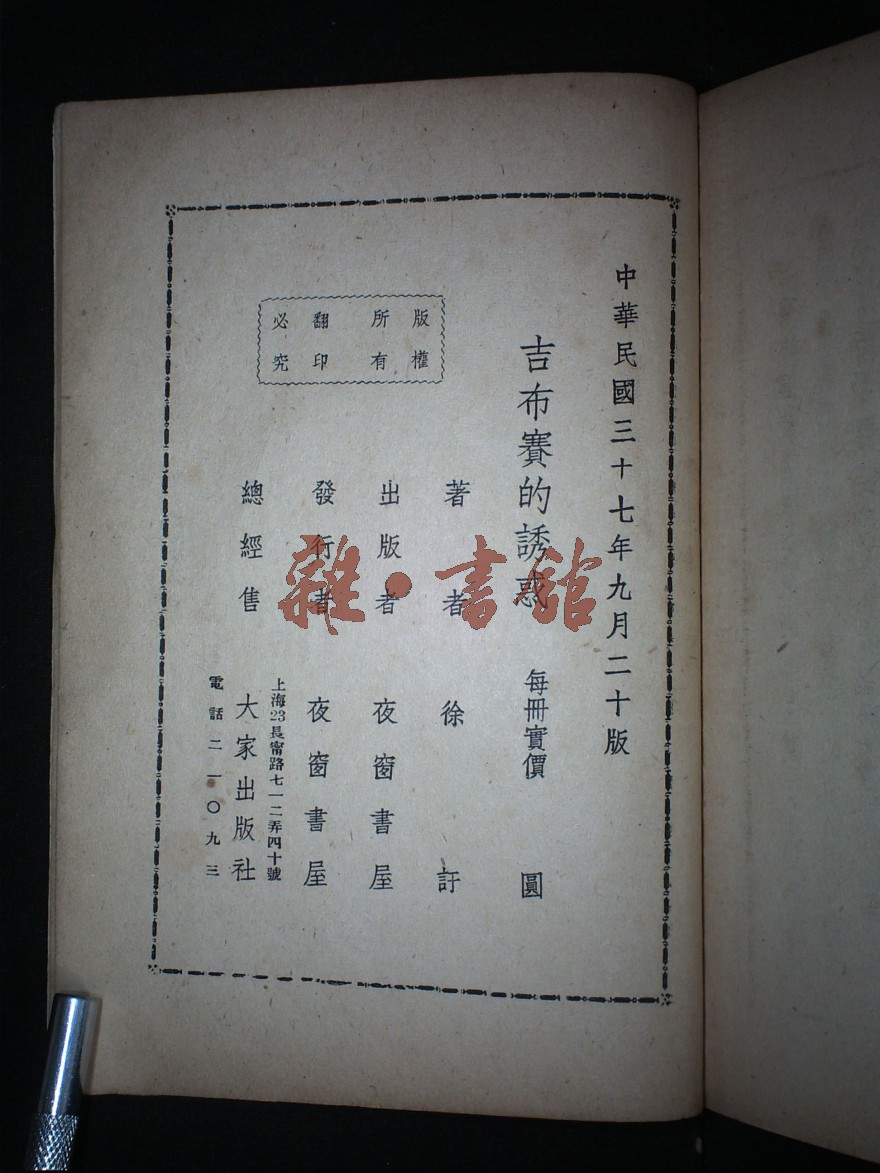 中華民國三十七年九月二十版
吉布賽的誘惑 每冊實價 圓
著者 徐訏
出版者 夜窗書屋
發行者 夜窗書屋
上海23長甯路七一二弄四十號
總經售 大家出版社
電話二一〇九三
版權
所有
翻印
必究
雜·書館